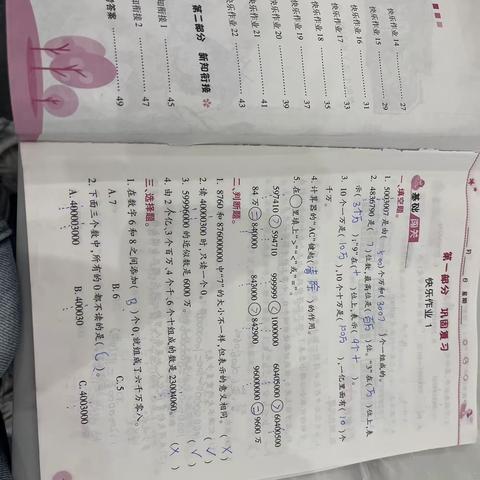 快乐作业 14 …… 27
快乐作业 15 …… 29
快乐作业 16 …… 31
快乐作业 17 …… 33
快乐作业 18 …… 35
快乐作业 19 …… 37
快乐作业 20 …… 39
快乐作业 21 …… 41
快乐作业 22 …… 43
第二部分 新知衔接
知衔接 1 …… 45
知衔接 2 …… 47
答案 …… 49
第一部分 巩固复习
快乐作业 1
基础闯关
一、填空题。
1. 5003007 是由( 500 )个万和( 3007 )个一组成的。
2. 4836790 是( 7 )位数,最高位是( 百万 )位,“3”在( 万 )位上,表
示( 3个万 ),“9”在( 十 )位上,表示( 9个十 )。
3. 10 个一万是( 10万 ),10 个十万是( 100万 ),一亿里面有( 10 )个
千万。
4. 计算器的“AC”键起( 清除 )的作用。
5. 在○里填上“>”“<”或“=”。
597410 > 594710 999999 < 1000000 60405000 > 60400500
84 万 = 840000 843000 > 842900 96000000 = 9600 万
二、判断题。
1. 8760 和 876000000 中“7”的大小不一样,但表示的意义相同。 ( X )
2. 读 40000300 时,只读一个 0。 ( √ )
3. 59996000 的近似数是 6000 万。 ( √ )
4. 由 2 个亿、3 个百万、4 个千、6 个十组成的数是 23004060。 ( X )
三、选择题。
1. 在数字 6 和 8 之间添加( B )个 0,就组成了六千万零八。
A. 7 B. 6 C. 5
2. 下面三个数中,所有的 0 都不读的是( C )。
A. 400003000 B. 400030 C. 4003000